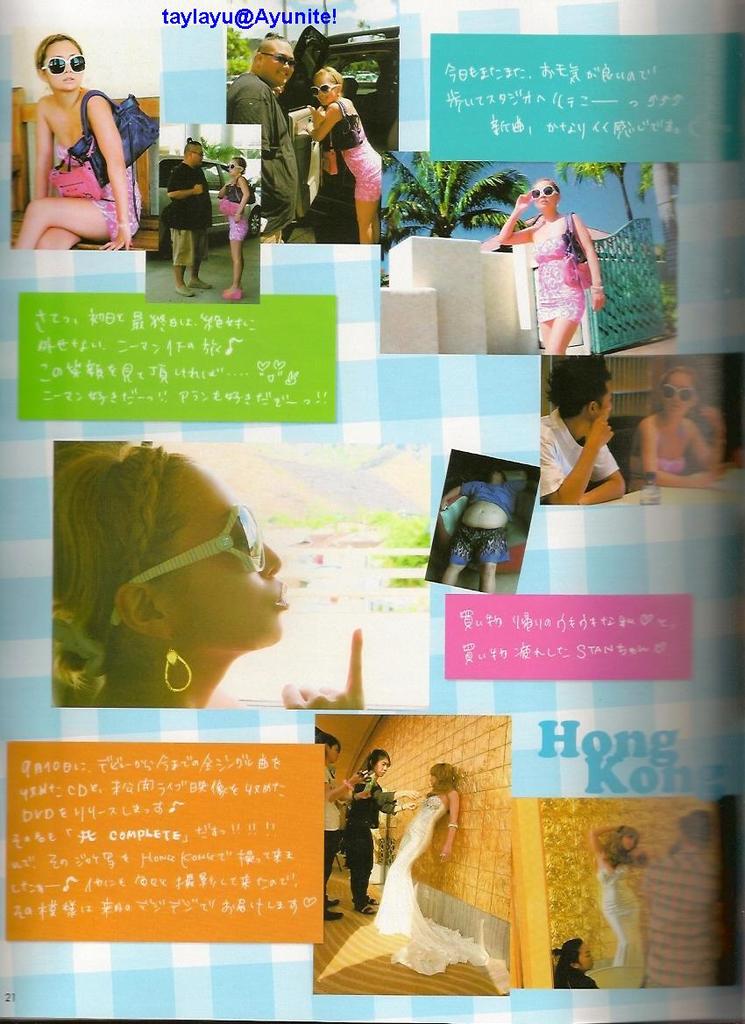 taylayu@Ayunite!
今日もまたまた、お天気が良いので
歩いてスタジオへ
新曲、かなりイイ感じです。
さてっ、初日と最終日は、絶対に
外せない、ニーマン の旅♪
この笑顔を見て頂ければ‥‥
ニーマン好きだーっ!! アランも好きだぞーっ!!
買い物帰りのウキウキな私♡と、
買い物疲れしたSTANちゃん♡
9月10日に、デビューから今までの全シングル曲を
収めたCDと、未公開ライブ映像を収めた
DVDをリリースしまっす♪
その名も「 COMPLETE」だょっ!!!!
んで、そのジャケ写もHONG KONGで撮って来ま
したっー♪ 他にも 撮影して来たので、
その模様は来月のマジデジでお届けします♡
Hong
Kong
21